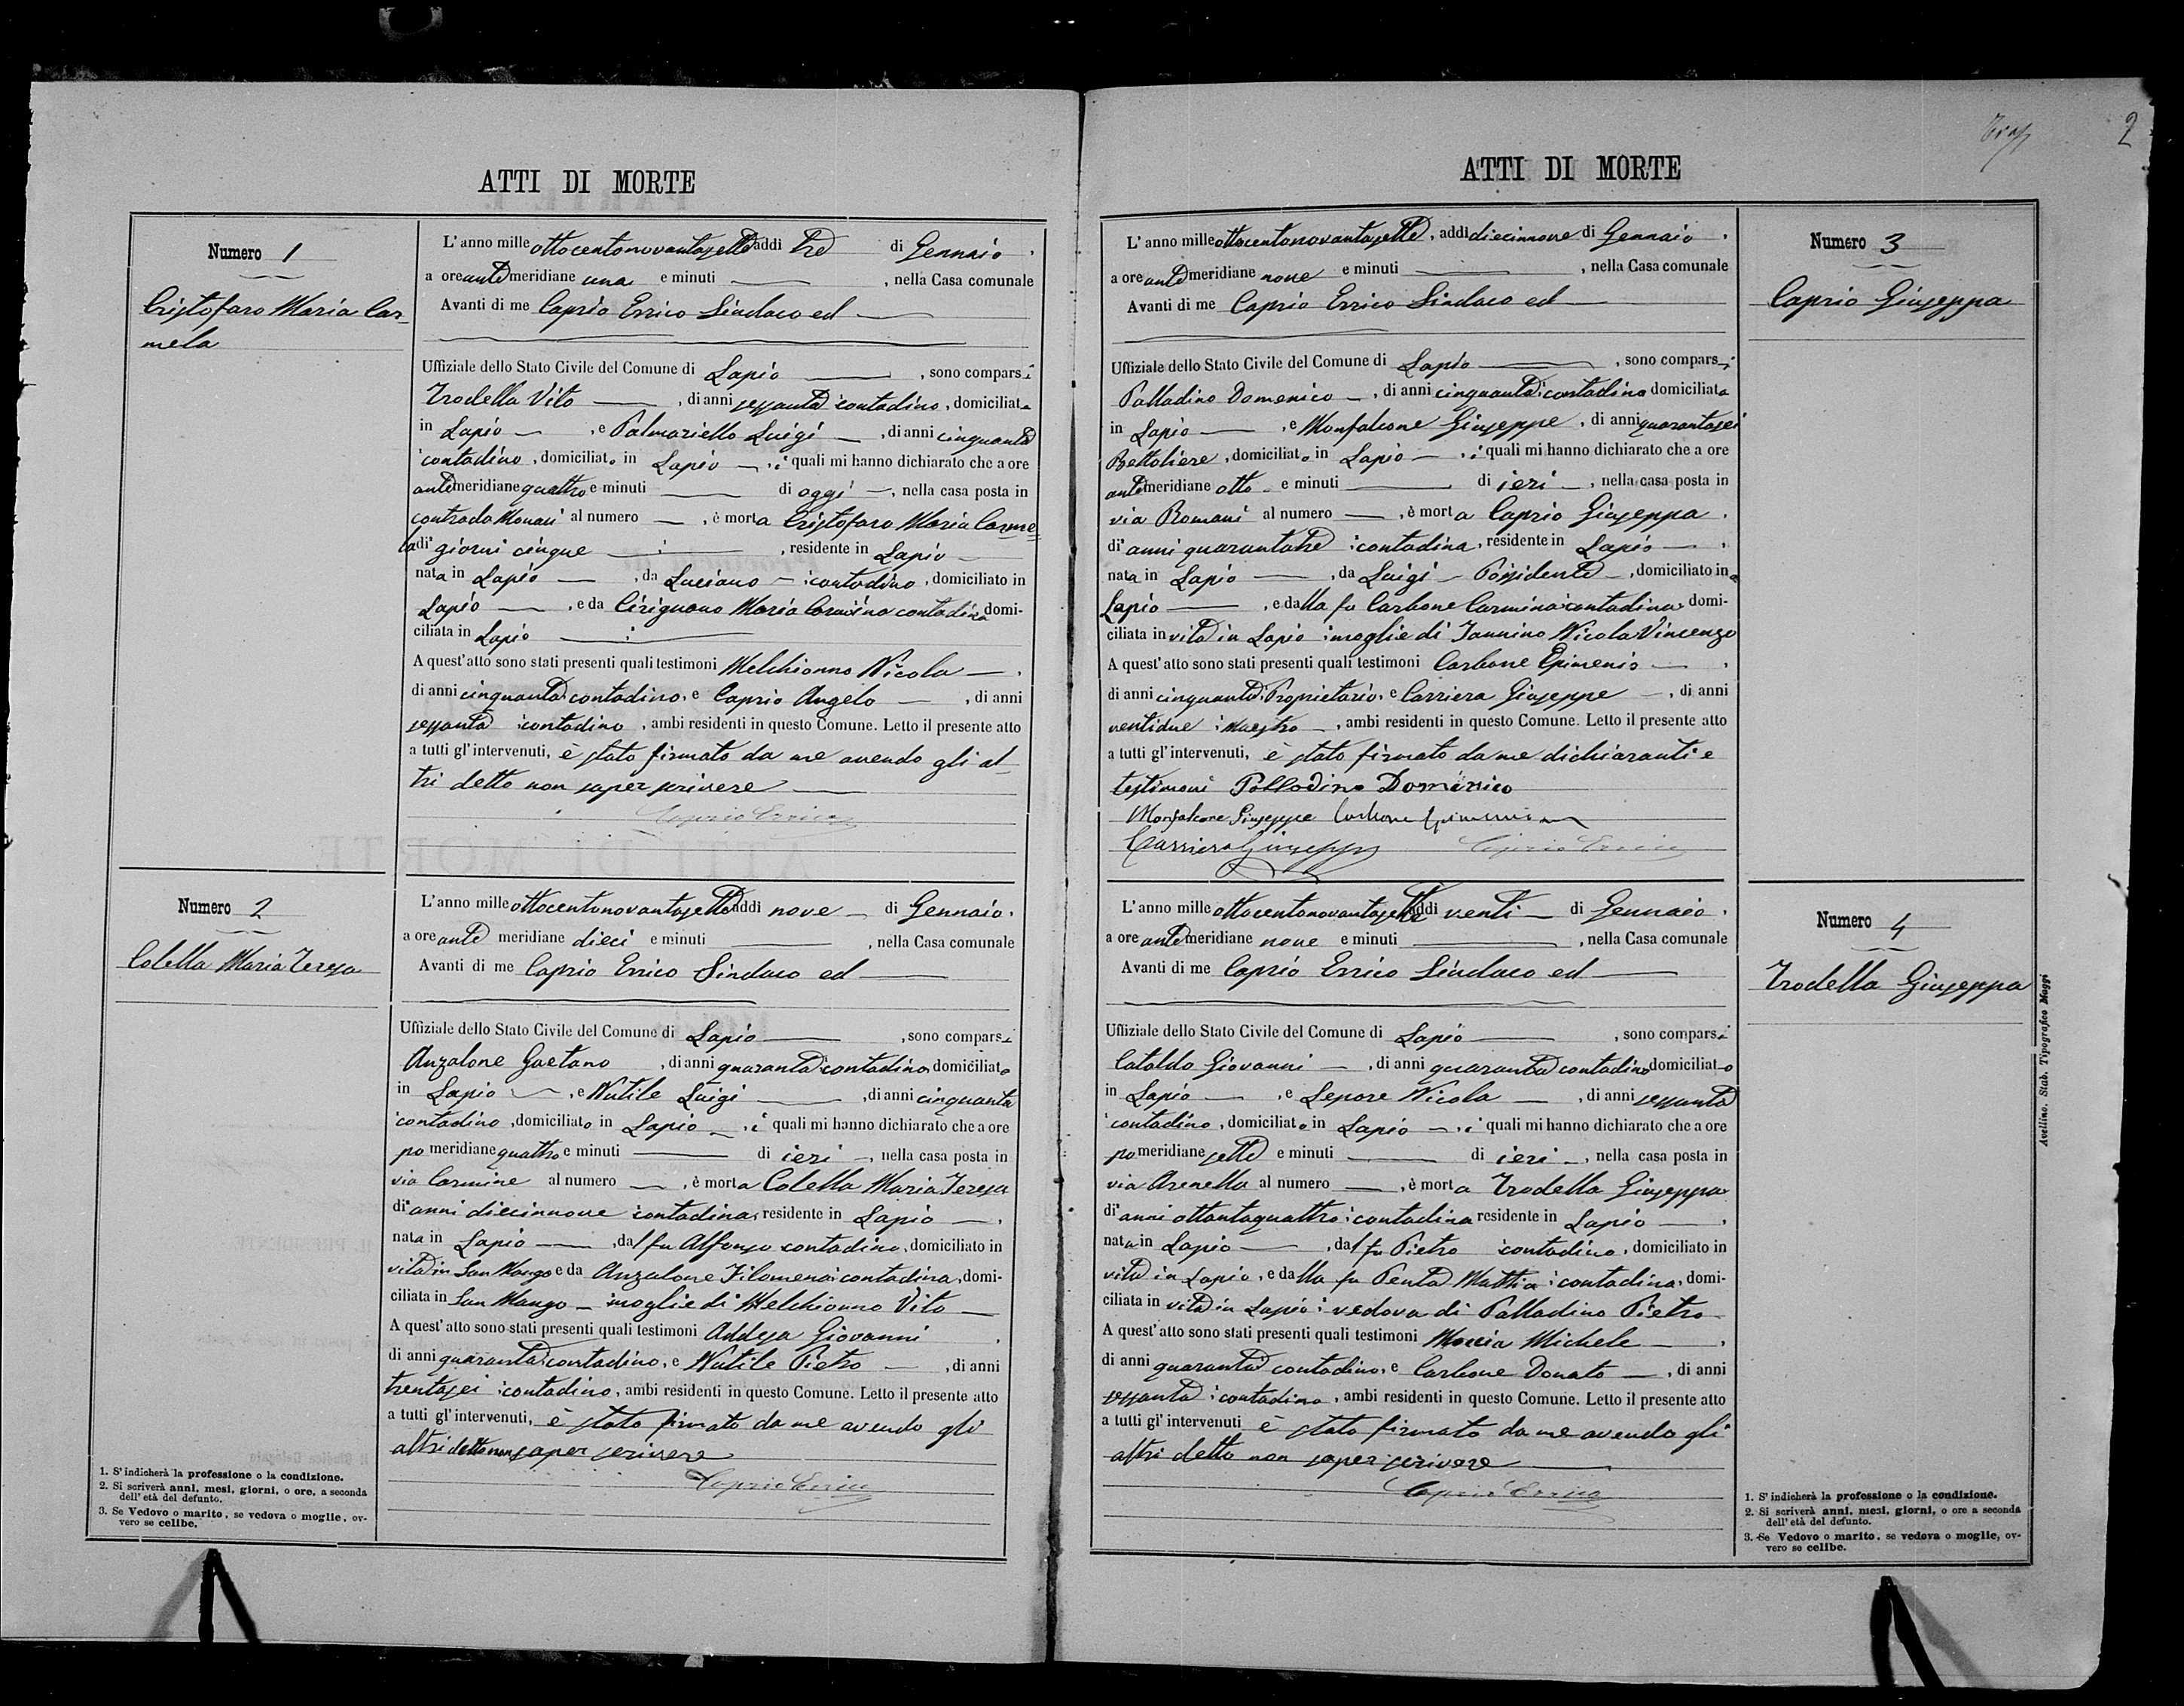 ATTI DI MORTE
Numero 1
Cristofaro Maria Car-
mela
L'anno mille ottocentonovantasette addì tre di Gennaio,
a ore antemeridiane una e minuti , nella Casa comunale
Avanti di me Caprio Errico Sindaco ed
Uffiziale dello Stato Civile del Comune di Lapio , sono comparsi
Trodella Vito , di anni sessanta contadino, domiciliato
in Lapio , e Palmariello Luigi , di anni cinquanta
contadino, domiciliato in Lapio , i quali mi hanno dichiarato che a ore
antemeridiane quattro e minuti di oggi , nella casa posta in
contrada Monaci al numero , è morta Cristofaro Maria Carme=
la di giorni cinque , residente in Lapio
nata in Lapio , da Luciano contadino, domiciliato in
Lapio , e da Cirignano Maria Carmina contadina domi-
ciliata in Lapio
A quest'atto sono stati presenti quali testimoni Melchionno Nicola
di anni cinquanta contadino, e Caprio Angelo , di anni
sessanta contadino, ambi residenti in questo Comune. Letto il presente atto
a tutti gl'intervenuti, è stato firmato da me avendo gli al-
tri detto non saper scrivere
Caprio Errico
Numero 2
Colella Maria Teresa
L'anno mille ottocentonovantasette addì nove di Gennaio,
a ore ante meridiane dieci e minuti , nella Casa comunale
Avanti di me Caprio Errico Sindaco ed
Uffiziale dello Stato Civile del Comune di Lapio , sono comparsi
Anzalone Gaetano , di anni quaranta contadino domiciliato
in Lapio , e Nutile Luigi , di anni cinquanta
contadino, domiciliato in Lapio , i quali mi hanno dichiarato che a ore
po meridiane quattro e minuti di ieri , nella casa posta in
via Carmine al numero , è morta Colella Maria Teresa
di anni diecinnove contadina, residente in Lapio
nata in Lapio , dal fu Alfonso contadino, domiciliato in
vita in San Mango e da Anzalone Filomena contadina, domi-
ciliata in San Mango moglie di Melchionno Vito
A quest'atto sono stati presenti quali testimoni Addesa Giovanni ,
di anni quaranta contadino, e Nutile Pietro , di anni
trentasei contadino, ambi residenti in questo Comune. Letto il presente atto
a tutti gl'intervenuti, è stato firmato da me avendo gli
altri detto non saper scrivere
Caprio Errico
1. S'indicherà la professione o la condizione.
2. Si scriverà anni, mesi, giorni, o ore, a seconda
dell'età del defunto.
3. Se Vedovo o marito, se vedova o moglie, ov-
vero se celibe.
2
ATTI DI MORTE
Numero 3
Caprio Giuseppa
L'anno mille ottocentonovantasette, addì diecinnove di Gennaio,
a ore antemeridiane nove e minuti , nella Casa comunale
Avanti di me Caprio Errico Sindaco ed
Uffiziale dello Stato Civile del Comune di Lapio , sono comparsi
Palladino Domenico , di anni cinquanta contadino domiciliato
in Lapio , e Monfalcone Giuseppe, di anni quarantasei
Bettoliere, domiciliato in Lapio , i quali mi hanno dichiarato che a ore
antemeridiane otto e minuti di ieri , nella casa posta in
via Romani al numero , è morta Caprio Giuseppa,
di anni quarantatre contadina, residente in Lapio ,
nata in Lapio , da Luigi Possidente , domiciliato in
Lapio , e dalla fu Carbone Carmina contadina domi-
ciliata in vita in Lapio moglie di Iannino Nicola Vincenzo
A quest'atto sono stati presenti quali testimoni Carbone Epimenio ,
di anni cinquanta, Proprietario, e Carriera Giuseppe , di anni
ventidue maestro , ambi residenti in questo Comune. Letto il presente atto
a tutti gl'intervenuti, è stato firmato da me dichiaranti e
testimoni Palladino Domenico
Monfalcone Giuseppe Carbone Epimenio
Carriera Giuseppe Caprio Errico
Numero 4
Trodella Giuseppa
L'anno mille ottocentonovantasette addì venti di Gennaio,
a ore antemeridiane nove e minuti , nella Casa comunale
Avanti di me Caprio Errico Sindaco ed
Uffiziale dello Stato Civile del Comune di Lapio , sono comparsi
Cataldo Giovanni , di anni quaranta contadino domiciliato
in Lapio , e Lepore Nicola , di anni sessanta
contadino, domiciliato in Lapio , i quali mi hanno dichiarato che a ore
pomeridiane sette e minuti di ieri , nella casa posta in
via Arenella al numero , è morta Trodella Giuseppa
di anni ottantaquattro contadina residente in Lapio ,
nata in Lapio , dal fu Pietro contadino, domiciliato in
vita in Lapio, e dalla fu Penta Mattia contadina, domi-
ciliata in vita in Lapio vedova di Palladino Pietro
A quest'atto sono stati presenti quali testimoni Moccia Michele ,
di anni quaranta contadino, e Carbone Donato , di anni
sessanta contadino, ambi residenti in questo Comune. Letto il presente atto
a tutti gl'intervenuti è stato firmato da me avendo gli
altri detto non saper scrivere
Caprio Errico
1. S'indicherà la professione o la condizione.
2. Si scriverà anni, mesi, giorni, o ore a seconda
dell'età del defunto.
3. Se Vedovo o marito, se vedova o moglie, ov-
vero se celibe.
Avellino. Stab. Tipografico Maggi